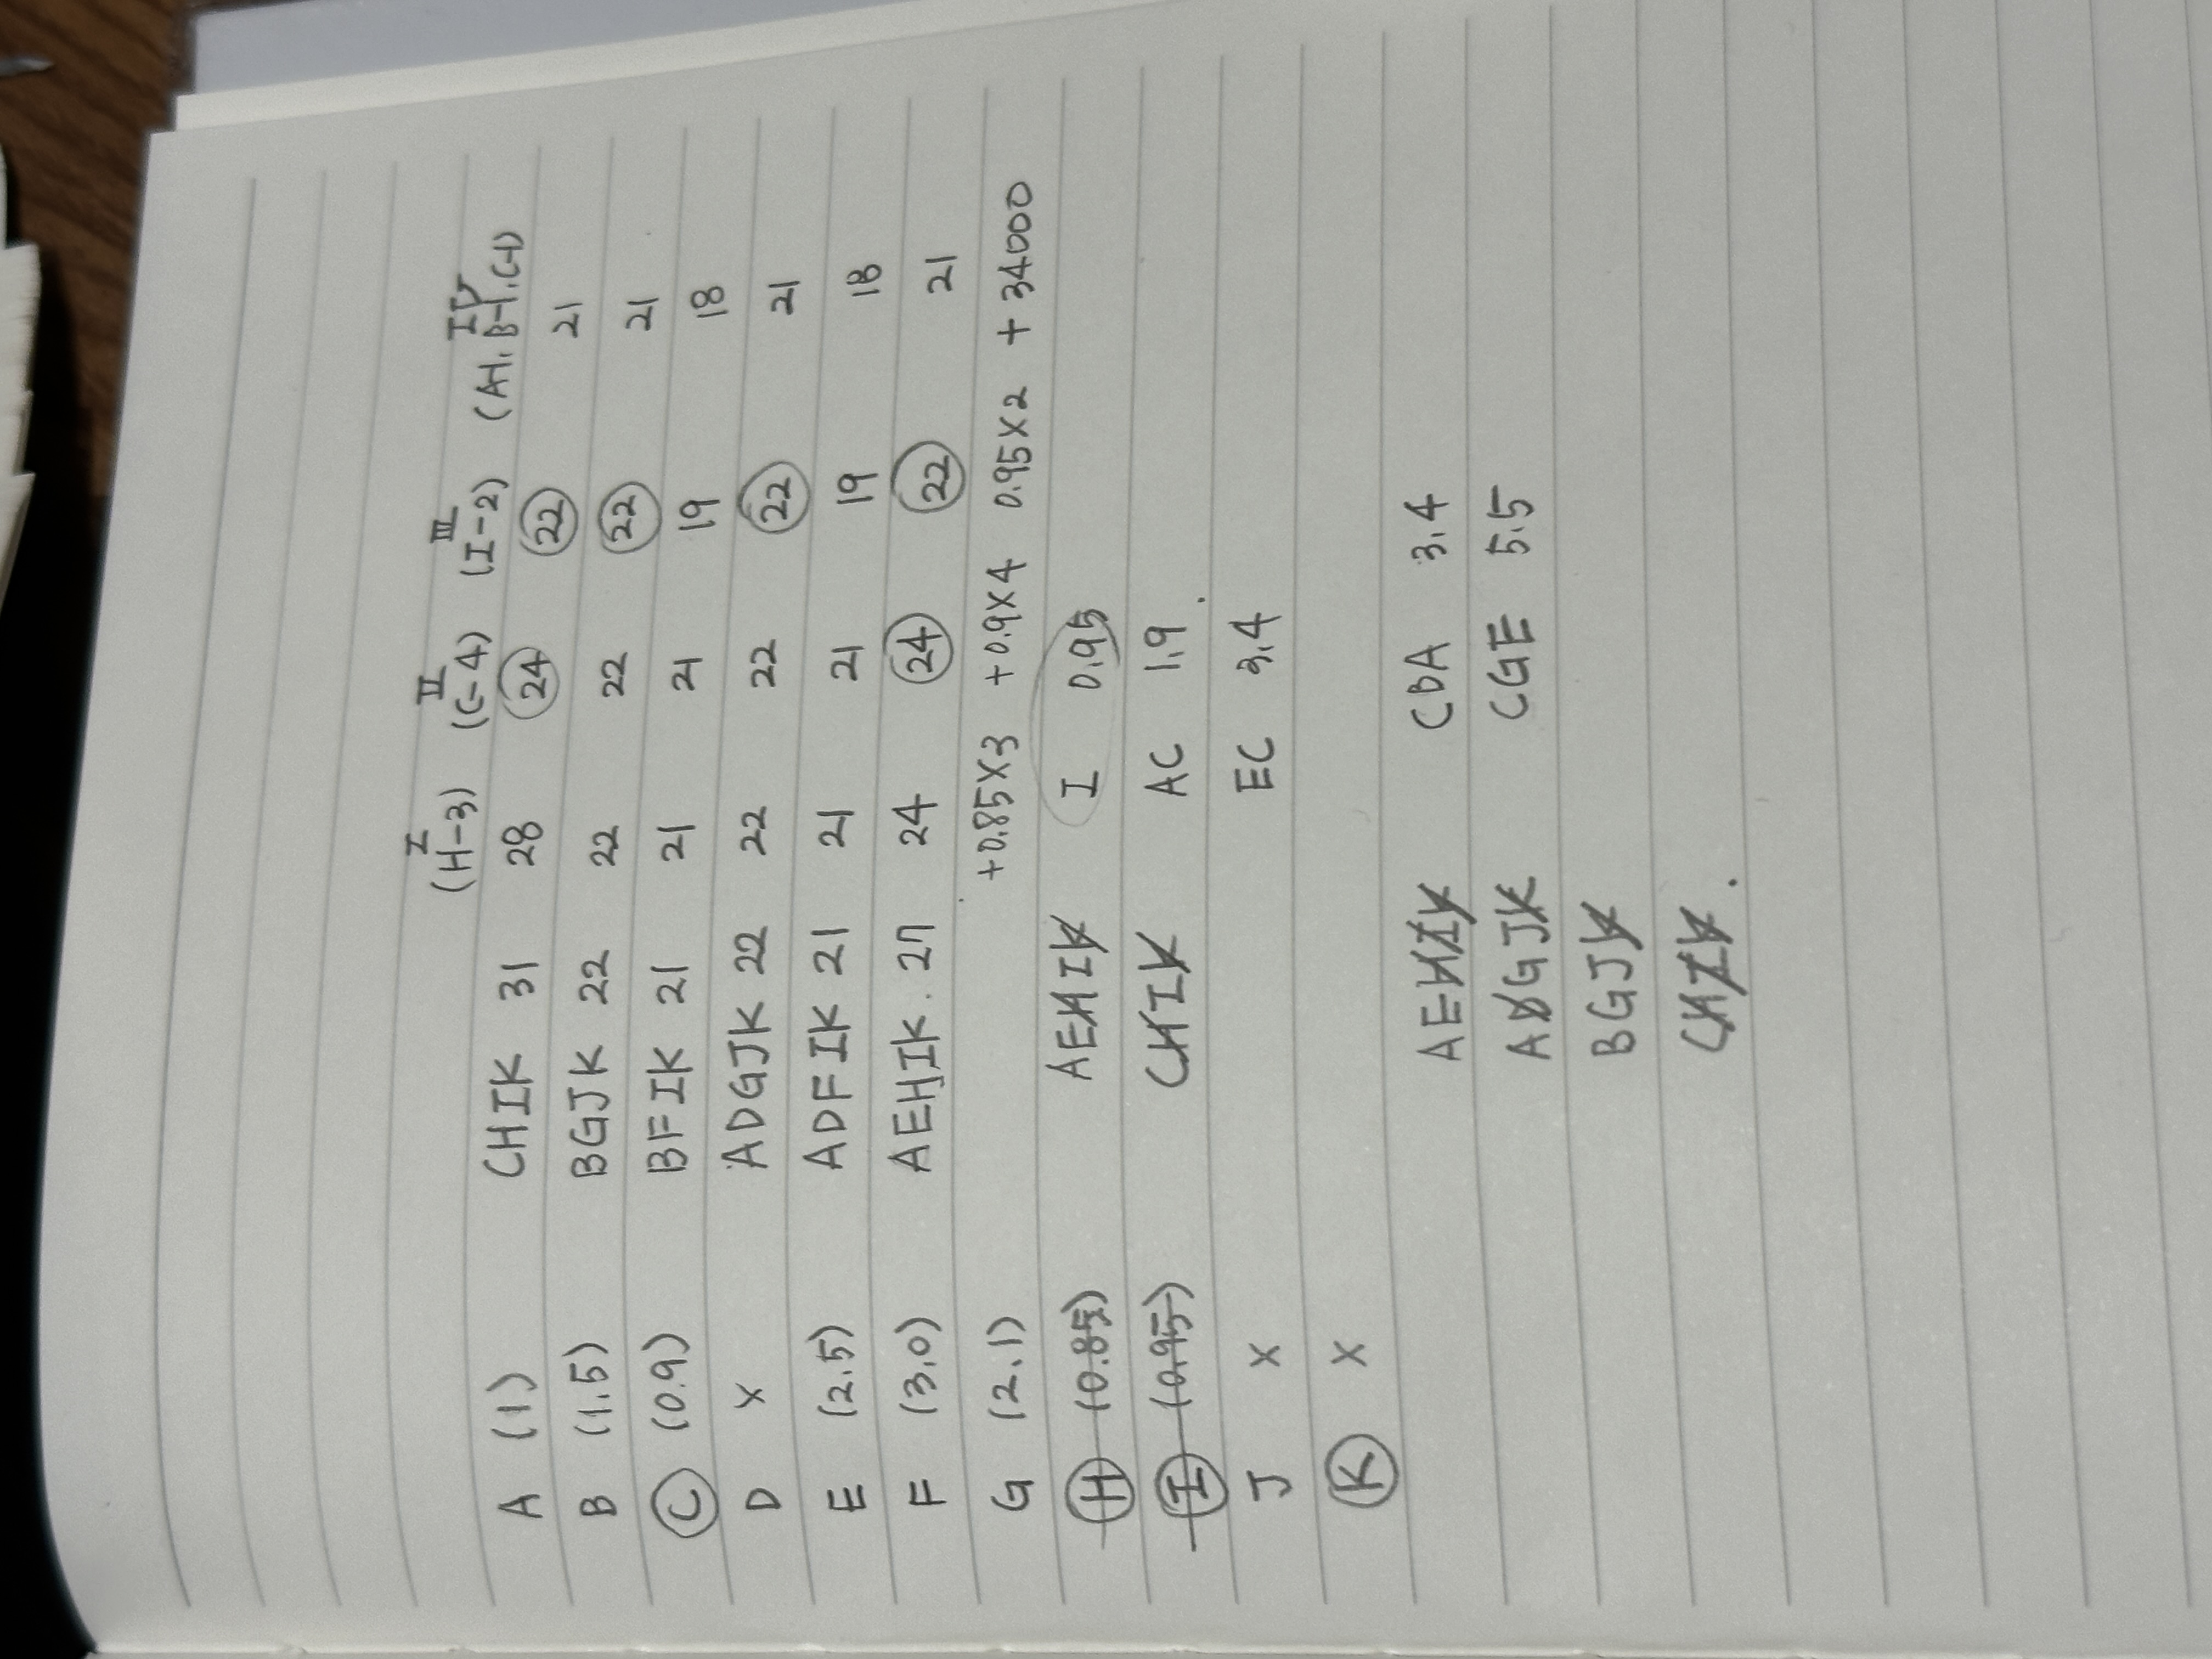 I II III IV
(H-3) (C-4) (I-2) (A-1, B-1, C-1)
A (1) CHIK 31 28 24 22 21
B (1.5) BGJK 22 22 22 22 21
C (0.9) BFIK 21 21 21 19 18
D x ADGJK 22 22 22 22 21
E (2.5) ADFIK 21 21 21 19 18
F (3.0) AEHIK 27 24 24 22 21
G (2.1) +0.85x3 +0.9x4 0.95x2 +34000
H (0.85) AEHIK I 0.95
I (0.95) CHIK AC 1.9
J x EC 3.4
K x
AEHIK CBA 3.4
ADGJK CGE 5.5
BGJK
CHIK